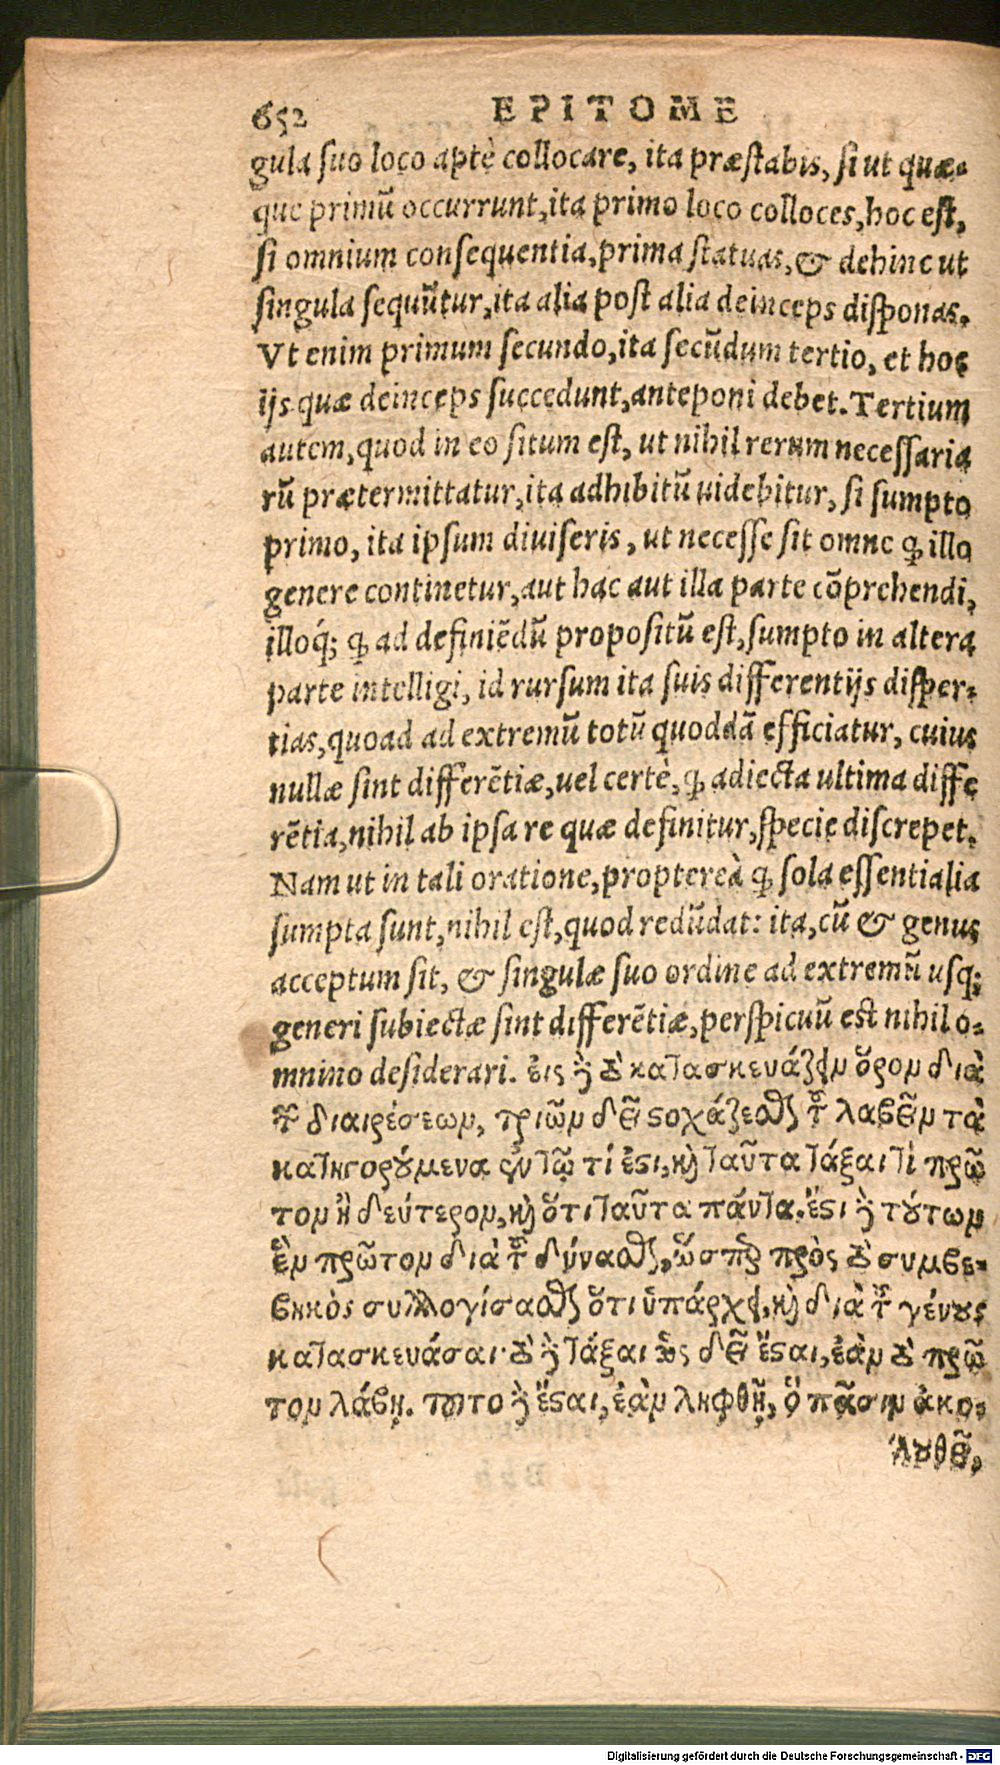 652 EPITOME
gula suo loco aptè collocare, ita præstabis, si ut quæ-
que primũ occurrunt, ita primo loco colloces, hoc est,
si omnium consequentia, prima statuas, & dehinc ut
singula sequũtur, ita alia post alia deinceps disponas.
Vt enim primum secundo, ita secũdum tertio, et hoc
ijs quæ deinceps succedunt, anteponi debet. Tertium
autem, quod in eo situm est, ut nihil rerum necessaria
rũ prætermittatur, ita adhibitũ uidebitur, si sumpto
primo, ita ipsum diuiseris, ut necesse sit omne ꝙ illo
genere continetur, aut hac aut illa parte cõprehendi,
illoq́; ꝙ ad definiẽdũ propositũ est, sumpto in altera
parte intelligi, id rursum ita suis differentijs disper-
tias, quoad ad extremũ totũ quoddã efficiatur, cuius
nullæ sint differẽtiæ, uel certè, ꝙ adiecta ultima diffe
rẽtia, nihil ab ipsa re quæ definitur, specie discrepet.
Nam ut in tali oratione, propterea�barra ꝙ sola essentialia
sumpta sunt, nihil est, quod redũdat: ita, cũ & genus
acceptum sit, & singulæ suo ordine ad extremũ usq;
generi subiectæ sint differẽtiæ, perspicuũ est nihil o-
mnino desiderari. εἰς ἢ τὸ κατασκευάζειν ὅρον διὰ
τῶν διαιρέσεων, τριῶν δεῖ στοχάζεσθαι τοῦ λαβεῖν τὰ
κατηγορούμενα ἐν τῷ τί ἐστι, καὶ ταῦτα τάξαι τί πρῶ
τον ἢ δεύτερον, καὶ ὅτι ταῦτα πάντα. ἔστι δὲ τούτων
ἓν πρῶτον διὰ τοῦ δύνασθαι, ὥσπερ πρὸς τὸ συμβε-
βηκὸς συλλογίσασθαι ὅτι ὑπάρχει, καὶ διὰ τοῦ γένους
κατασκευάσαι· τὸ δὲ τάξαι ὡς δεῖ ἔσται, ἐὰν τὸ πρῶ
τον λάβῃ. τοῦτο δὲ ἔσται, ἐὰν ληφθῇ, ὃ πᾶσιν ἀκο-
λουθεῖ,
Digitalisierung gefördert durch die Deutsche Forschungsgemeinschaft - DFG